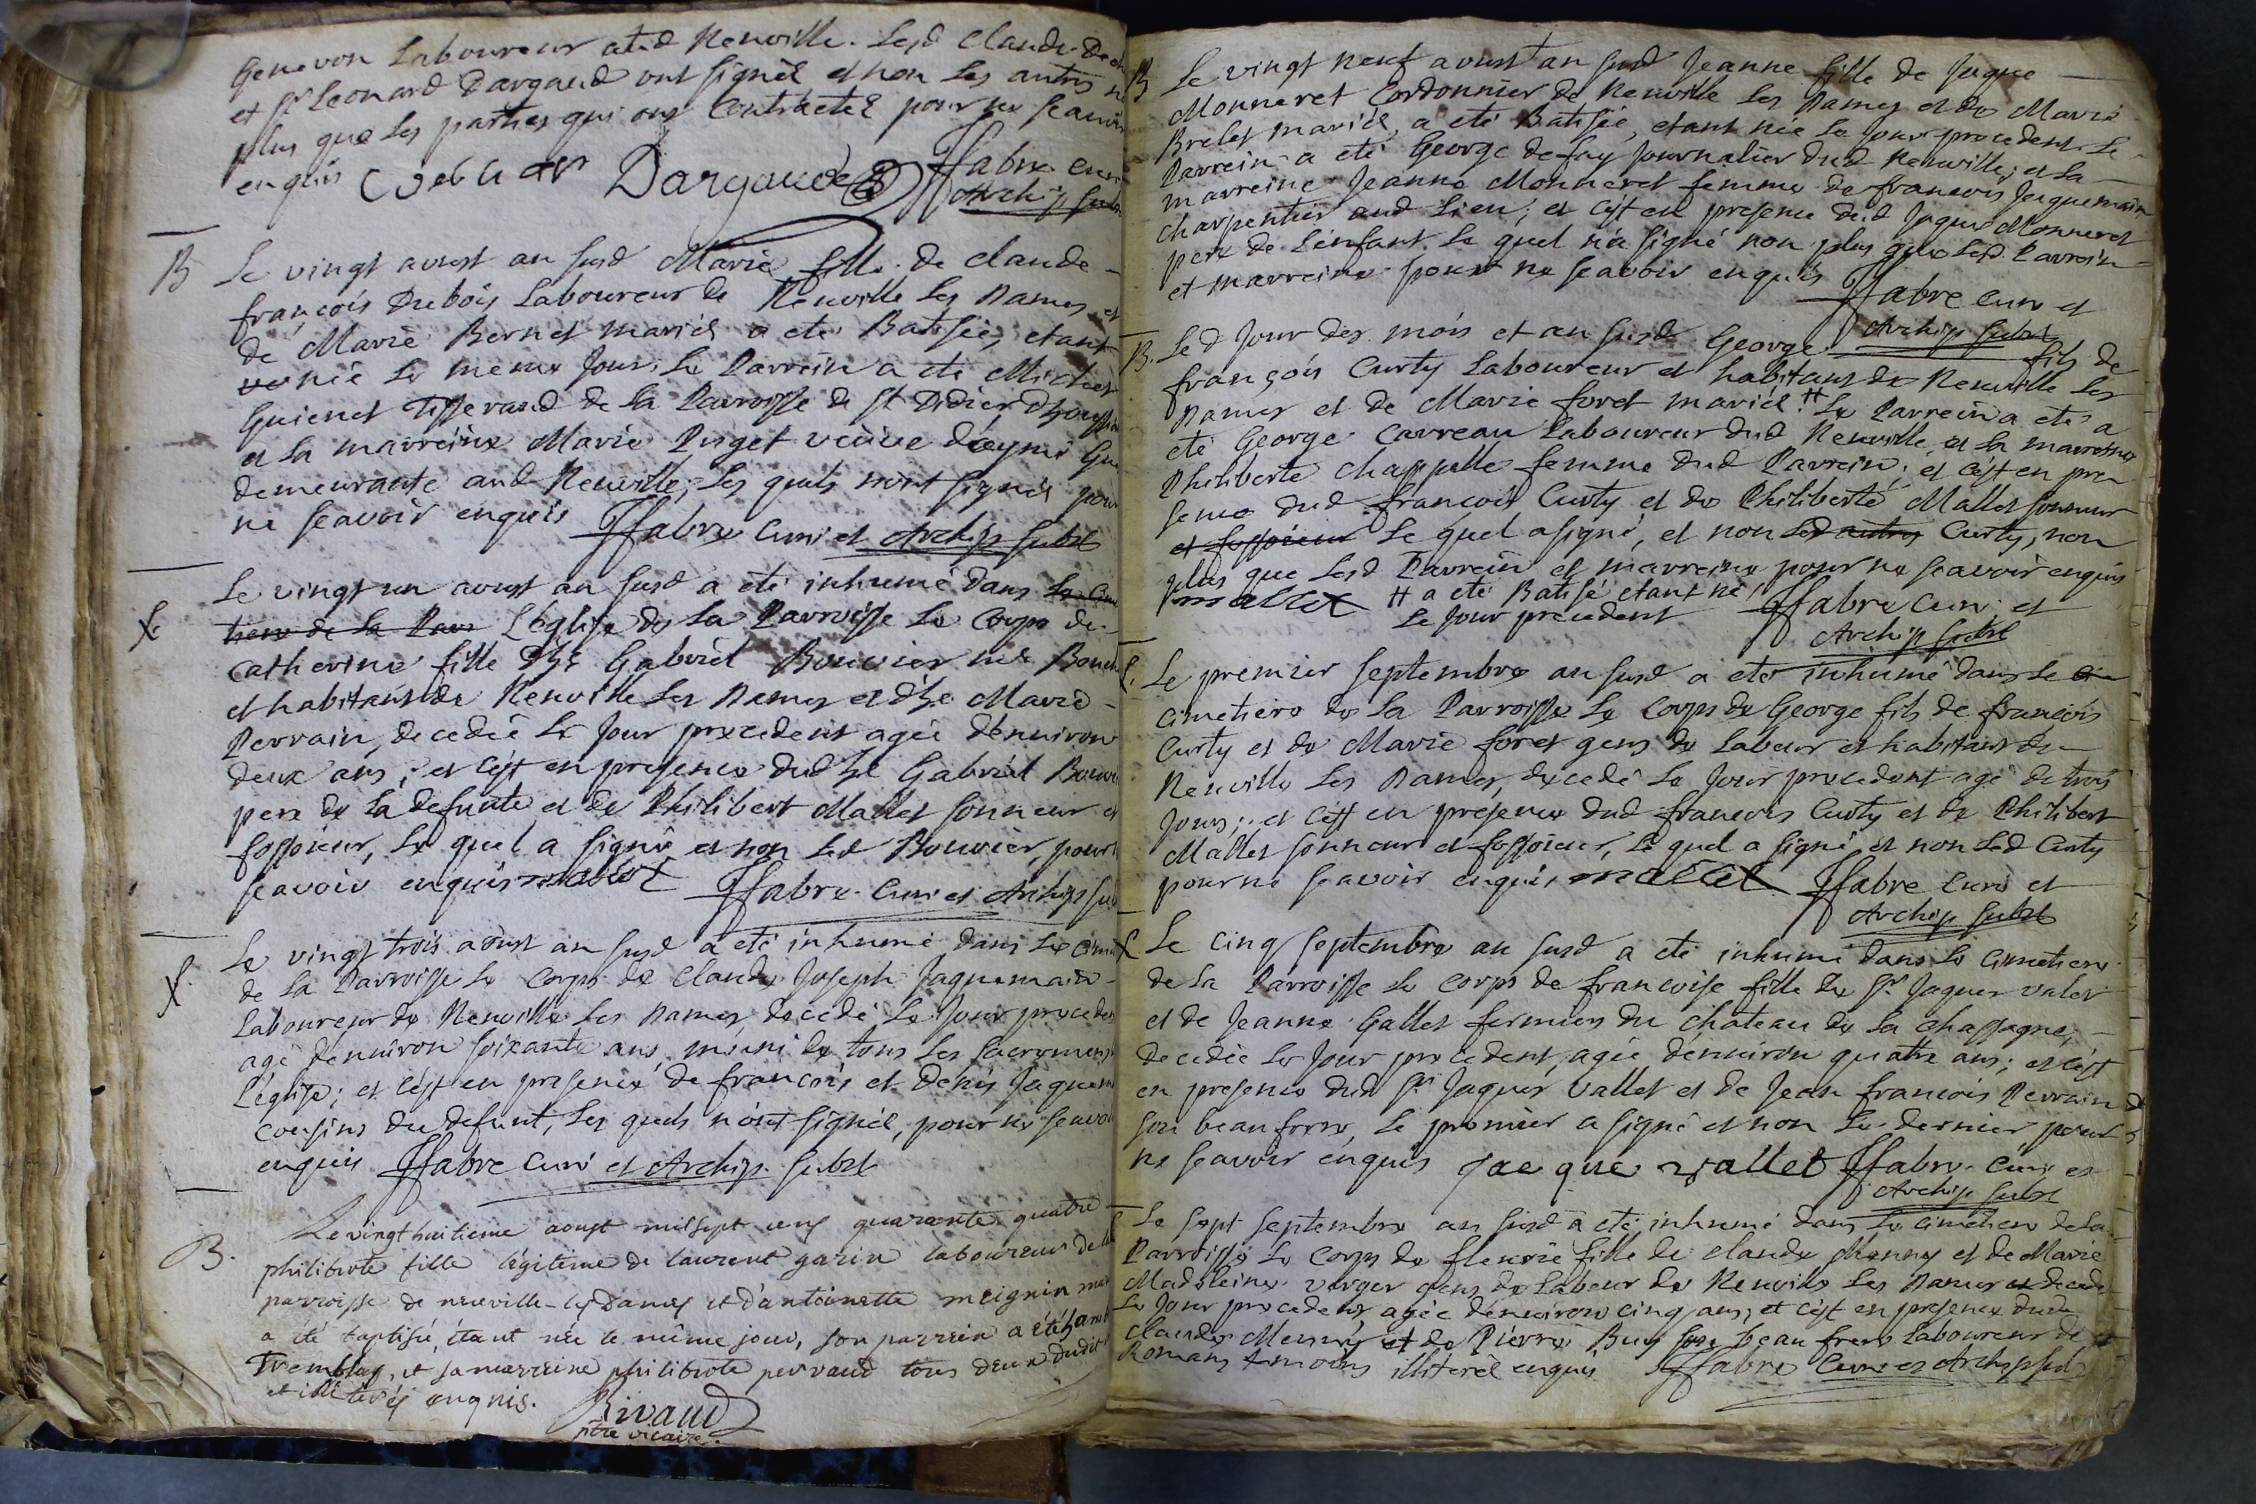 Genevon Laboureur aud Neuville. Lesd Claude
et Sr Leonard Dargaud ont signés et non les autres
plus que les parties qui ont contractés pour ne scavoir
enquis Dargaud ffabre curé
Archip subst
B Le vingt aoust an susd Marie fille de Claude
françois Dubois Laboureur de Neuville les Dames et
de Marie Bernet mariés a eté Batisée, etant
née le meme jour. Le Parrein a eté Michel
Guienet Tisserand de la Parroisse de St Didier
et la marreine Marie Puget veuve
demeurante aud Neuville; les quels n'ont signés pour
ne scavoir enquis ffabre curé et Archip subst
Le vingt un aoust an susd a eté inhumé dans
L'église de la Parroisse le corps de
Catherine fille d'hte Gabriel Bouvier me
et habitant de Neuville les Dames et d'hte Marie
Perrain, decedée le jour precedent agée d'environ
deux ans; et c'est en presence dud ht Gabriel
pere de la defunte et de Philibert Mallet sonneur et
fossoieur, le quel a signé et non led Bouvier, pour
scavoir enquis mallet ffabre curé et Archip
Le vingt trois aoust an susd a eté inhumé dans le
de la Parroisse le corps de Claude Joseph Jaquemain
Laboureur de Neuville les Dames, decedé le jour
agé d'environ soixante ans muni de tous les sacremens
L'église; et c'est en presence de francois et Denis
cousins du defunt, les quels n'ont signés, pour ne
enquis ffabre curé et Archip. subst
B. Le vingt huitieme aoust mil sept cens quarante quatre
philiberte fille légitime de laurent garin laboureur de
parroisse de neuville-les Dames et d'antoinette meignin
a été baptisée, étant née le même jour, son parrein a été
Tremblay, et sa marreine philiberte perraud tous deux dudit
et illiterés enquis. Rivaud
ptre vicaire.
B Le vingt neuf aoust an susd Jeanne fille de Jaque
Monneret Cordonnier de Neuville les Dames et de Marie
Brelet mariés, a eté Batisée, etant née le jour precedent. Le
Parrein a eté George defay journalier dud Neuville, et la
marreine Jeanne Monneret femme de francois Jaquemain
charpentier aud Lieu; et c'est en presence dud Jaque Monneret
pere de L'enfant. Le quel n'a signé non plus que lesd Parrein
et marreine pour ne scavoir enquis ffabre curé et
Archip subst
B. Led jour des mois et an susd George fils de
françois Curty Laboureur et habitant de Neuville les
Dames et de Marie foret mariés. # Le Parrein a eté
eté George Carreau Laboureur dud Neuville, et la marreine
Philiberte Chappelle femme dud Parrein; et c'est en pre
sence dud francois Curty et de Philiberte Mallet sonneur
et fossoieur le quel a signé, et non led autres Curty, non
plus que lesd Parrein et marreine pour ne scavoir enquis
mallet # a eté Batisé etant né ffabre curé et
Le jour precedent Archip subst
Le premier septembre an susd a eté inhumé dans le
cimetiere de la Parroisse le corps de George fils de françois
Curty et de Marie foret gens de labeur et habitans de
Neuville les Dames, decedé le jour precedent agé de trois
jours; et c'est en presence dud francois Curty et de Philibert
Mallet sonneur et fossoieur, le quel a signé et non led Curty
pour ne scavoir enquis mallet ffabre curé et
Archip subst
Le cinq septembre an susd a eté inhumé dans le cimetiere
de la Parroisse le corps de francoise fille de Sr Jaques valet
et de Jeanne Gallet fermiers du chateau de la Chassagne,
decedée le jour precedent, agée d'environ quatre ans; et c'est
en presence dud Sr Jaques Vallet et de Jean francois Perrain
son beau frere, le premier a signé et non le dernier, pour
ne scavoir enquis Jacque vallet ffabre curé et
Archip subst
Le sept septembre an susd a eté inhumé dans le cimetiere de la
Parroisse le corps de fleurie fille de Claude Menny et de Marie
Madeleine verger gens de labeur de Neuville les Dames
Le jour precedent, agée d'environ cinq ans; et c'est en presence dud
Claude et de Pierre Buy son beau frere Laboureur de
Romans temoins illiterés enquis ffabre curé et Archip